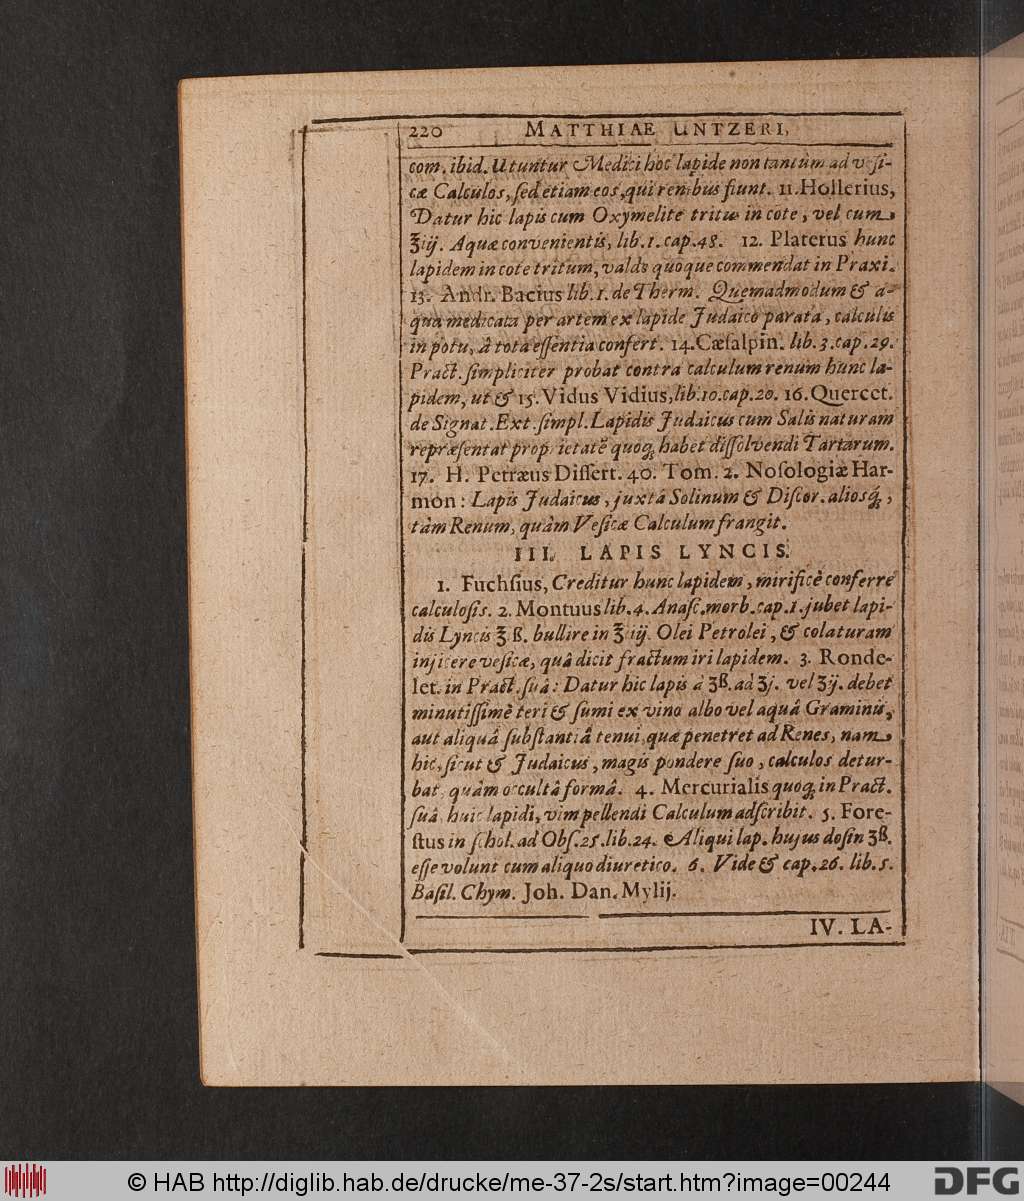 220 MATTHIAE UNTZERI,
com. ibid. Utuntur Medici hoc lapide non tantùm ad veſi-
cæ Calculos, ſed etiam eos, qui renibus fiunt. 11. Hollerius,
Datur hic lapis cum Oxymelite tritus in cote, vel cum
℥iij. Aquæ convenientis, lib. 1. cap. 48. 12. Platerus hunc
lapidem in cote tritum, valde quoque commendat in Praxi.
13. Andr. Bacius lib. 1. de Therm. Quemadmodum & a-
qua medicata per artem ex lapide Judaico parata, calculis
in potu, â tota eſſentia confert. 14. Cæſalpin. lib. 3. cap. 29.
Pract. ſimpliciter probat contra calculum renum hunc la-
pidem, ut & 15. Vidus Vidius, lib. 10. cap. 20. 16. Quercet.
de Signat. Ext. ſimpl. Lapidis Judaicus cum Salis naturam
repræſentat proprietatẽ quoq; habet diſſolvendi Tartarum.
17. H. Petræus Diſſert. 40. Tom. 2. Noſologiæ Har-
mon: Lapis Judaicus, juxtâ Solinum & Diſcor. aliosq́;,
tàm Renum, quàm Veſicæ Calculum frangit.
III. LAPIS LYNCIS.
1. Fuchſius, Creditur hunc lapidem, mirificè conferre
calculoſis. 2. Montuus lib. 4. Anaſc. morb. cap. 1. jubet lapi-
dis Lyncis ℥. ß. bullire in ℥iij. Olei Petrolei, & colaturam
injicere veſicæ, quâ dicit fractum iri lapidem. 3. Ronde-
let. in Pract. ſuâ: Datur hic lapis à ʒß. ad ʒj. vel ʒij. debet
minutiſſimè teri & ſumi ex vino albo vel aquâ Graminis,
aut aliquâ ſubſtantiâ tenui, quæ penetret ad Renes, nam
hic, ſicut & Judaicus, magis pondere ſuo, calculos detur-
bat, quàm occultâ formâ. 4. Mercurialis quoq; in Pract.
ſuâ, huic lapidi, vim pellendi Calculum adſcribit. 5. Fore-
ſtus in ſchol. ad Obſ. 25. lib. 24. Aliqui lap. hujus doſin ʒß.
eſſe volunt cum aliquo diuretico. 6. Vide & cap. 26. lib. 5.
Baſil. Chym. Joh. Dan. Mylij.
IV. LA-
© HAB http://diglib.hab.de/drucke/me-37-2s/start.htm?image=00244
DFG